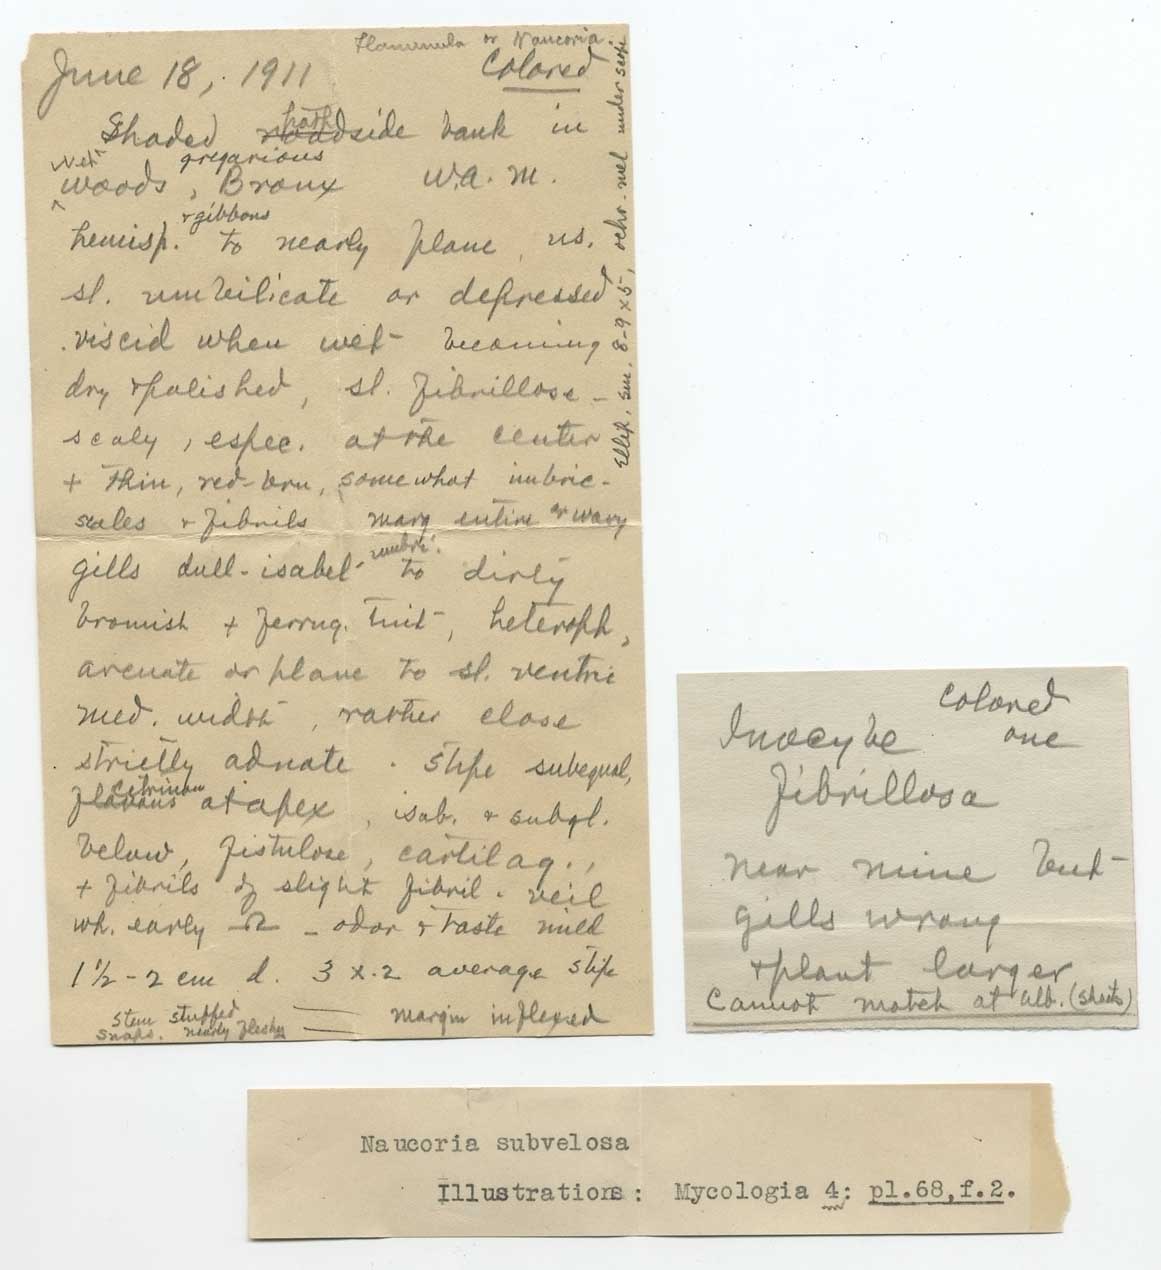 Flammula or Naucoria.
June 18, 1911 Colored
path
Shaded roadside bank in
wet gregarious
woods, Bronx W.A.M.
+ gibbous
hemisp. to nearly plane, us.
sl. umbilicate or depressed
viscid when wet becoming
dry + polished, sl. fibrillose-
scaly, espec. at the center
+ thin, red-brn, somewhat imbric-
scales + fibrils marg entire or wavy
umbri.
gills dull-isabel to dirty
brownish + ferrug. tint, heteroph,
arcuate or plane to sl. ventric
med. width, rather close
strictly adnate. Stipe subequal,
citrinous
flavous at apex, isab. + subgl.
below, fistulose, cartilag.,
+ fibrils of slight fibril. veil
wh. early - odor + taste mild
1 1/2 - 2 cm d. 3 x .2 average stipe
Stem stuffed margin inflexed
snaps. nearly fleshy
Ellip, sm. 8-9 x 5, ochr-mel under scope
colored
Inocybe one
fibrillosa
near mine but
gills wrong
+ plant larger
Cannot match at Alb. (sheets)
Naucoria subvelosa
Illustrations: Mycologia 4: pl.68,f.2.